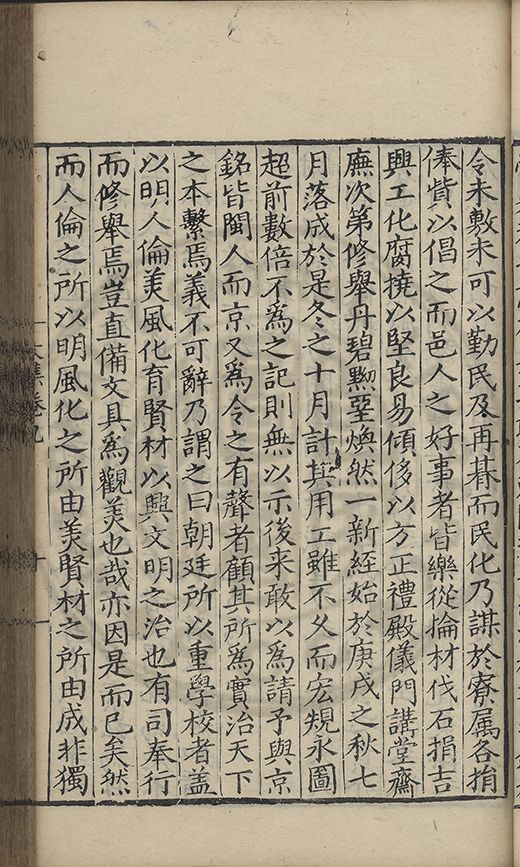 令未敷未可以勤民及再朞而民化乃謀於寮属各捐
俸貲以倡之而邑人之好事者皆樂從掄材伐石捐吉
興工化腐撓以堅良易傾侈以方正禮殿儀門講堂齋
廡次第修舉丹碧黝堊煥然一新經始於庚戌之秋七
月落成於是冬之十月計其用工雖不久而宏規永圖
超前數倍不為之記則無以示後来敢以為請予與京
銘皆閩人而京又為令之有聲者顧其所為實治天下
之本繫焉義不可辭乃謂之曰朝廷所以重學校者盖
以明人倫美風化育賢材以興文明之治也有司奉行
而修舉焉豈直備文具為觀美也哉亦因是而已矣然
而人倫之所以明風化之所由美賢材之所由成非獨
文集卷九